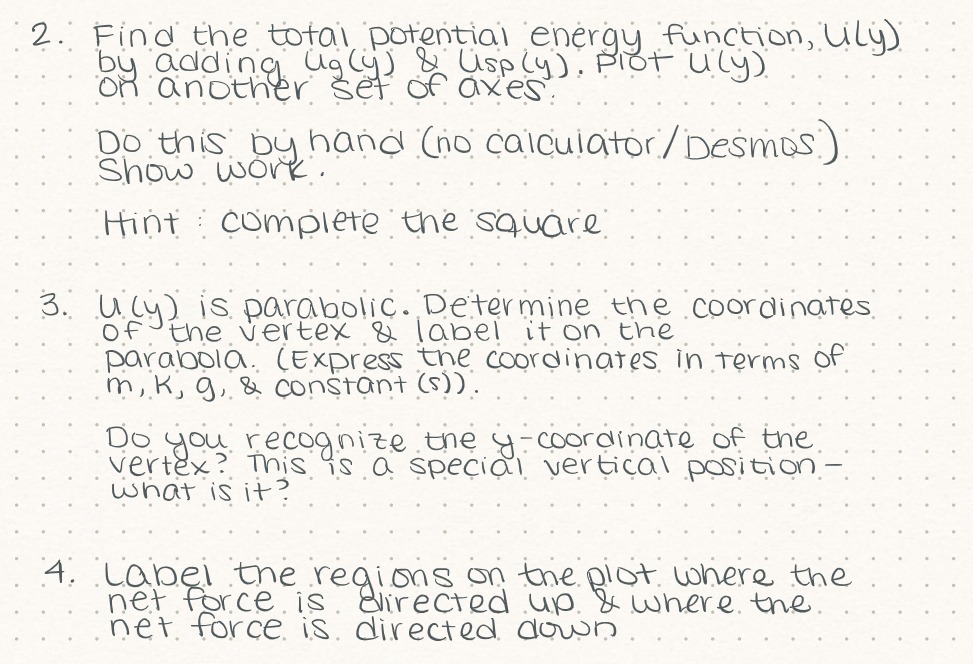 2. Find the total potential energy function, U(y)
by adding Ug(y) & Usp(y). Plot U(y)
on another set of axes.
Do this by hand (no calculator/Desmos)
Show work.
Hint : complete the square
3. U(y) is parabolic. Determine the coordinates
of the vertex & label it on the
parabola. (Express the coordinates in terms of
m, k, g, & constant(s)).
Do you recognize the y-coordinate of the
vertex? This is a special vertical position –
what is it?
4. Label the regions on the plot where the
net force is directed up & where the
net force is directed down